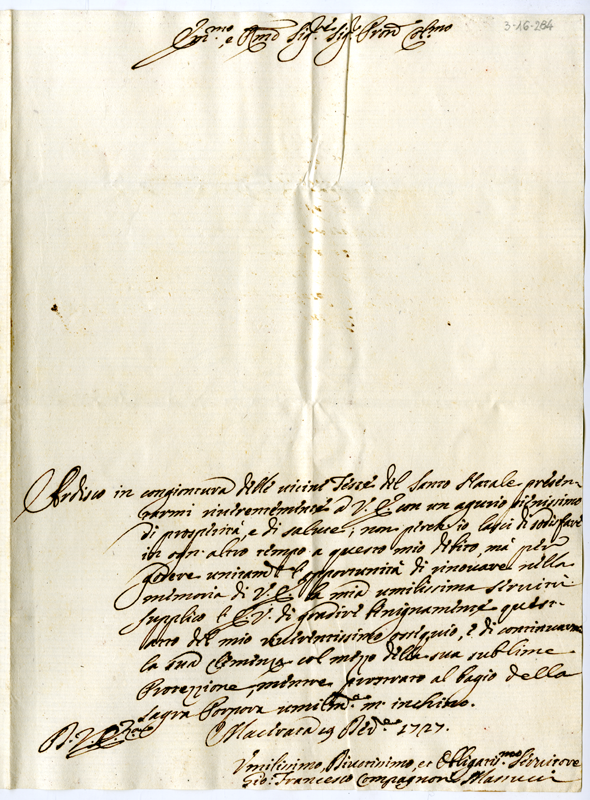 3-16-284
Em.mo, e Rmo Sig.re Sig.re Pron Col.mo
Ardisco in congiontura delle vicine Feste del Santo Natale presen-
tarmi riverentemente a V. E. con un agurio pienissimo
di prosperità, e di salute; non perche io lasci di sodisfare
in ogn' altro tempo a questo mio debito, mà per
godere unitam.te l'opportunità di rinovare nella
memoria di V. E. la mia umilissima servitù
Supplico l'E. V. di gradire benignamente quest'
atto del mio riverentissimo ossequio, e di continuarmi
la sua Clemenza col mezo della sua sublime
Protezzione, mentre prostrato al bagio della
sagra Porpora umilm.te m' inchino.
Macerata 19 Xbre 1727.
Umilissimo, Divotissimo, et Obligatis.mo Servitore
Gio: Francesco Compagnoni Marucci